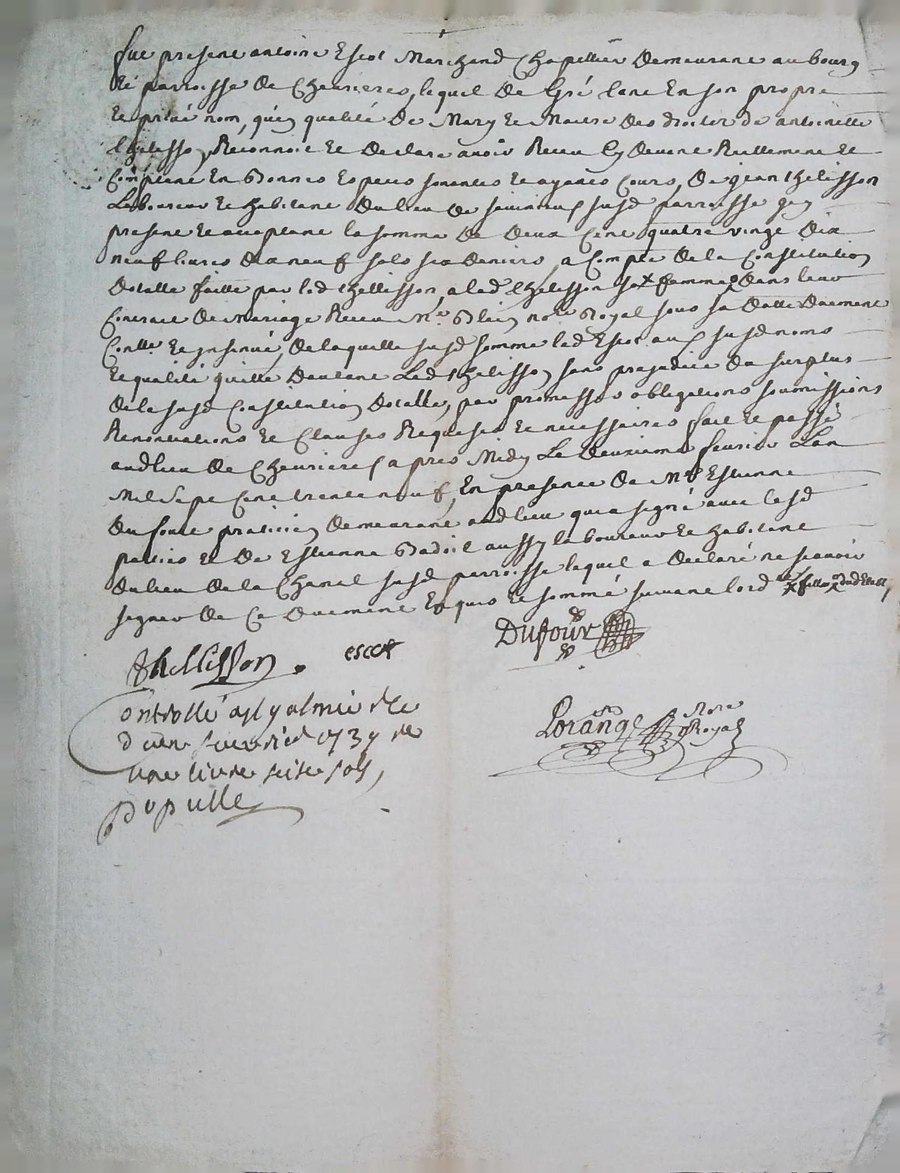 fut present antoine Escot Marchand Chapellier Demeurant au bourg
Et parroisse de Chevrieres, lequel de Gré tant En son propre
Et privé nom, qu'en qualité De Mary Et Maitre des droits de antoinette
thelisson, Reconnoit Et Declare avoir Receu Cy devant Reellement Et
Comptant En Bonnes Especes sonantes Et ayants Cours, De jean thelisson
Laboureur Et habitant Du lieu De susd parroisse icy
present Et acceptant la somme De Deux Cent quatre vingt Dix
neuf livres dix neuf sols six deniers, a Compte De la Constitution
Dotalle faitte par led thellisson, a lad thelisson sa femme dans leur
Contrat De Mariage Receu Me Blein nore Royal sous sa Datte Duement
Contlle Et Insinué, De laquelle susd somme led Escot aux susd noms
Et qualité quitte Dautant Led thelisson, sans prejudice Du surplus
De la susd Constitution Dotalle, par promesses obligations soumissions
Renonciations Et Clauses Requises Et necessaires fait Et passé
aud lieu De Chevrieres apres Midy Le Deuxieme fevrier Lan
Mil Sept Cent trente neuf, En presence De Me Estienne
Dufour praticien Demeurant aud lieu qui a signé avec lesd
parties Et De Estienne Badoil aussy laboureur Et habitant
Du lieu De la Chanal susd parroisse lequel a Declaré ne scavoir
signer De Ce Duement Enquis Et sommé suivant lord
thellisson escot Dufour
Controllé a St galmier le
deux fevrier 1739 Re
une livre seise sols,
pupille
Lorange Nore Royal